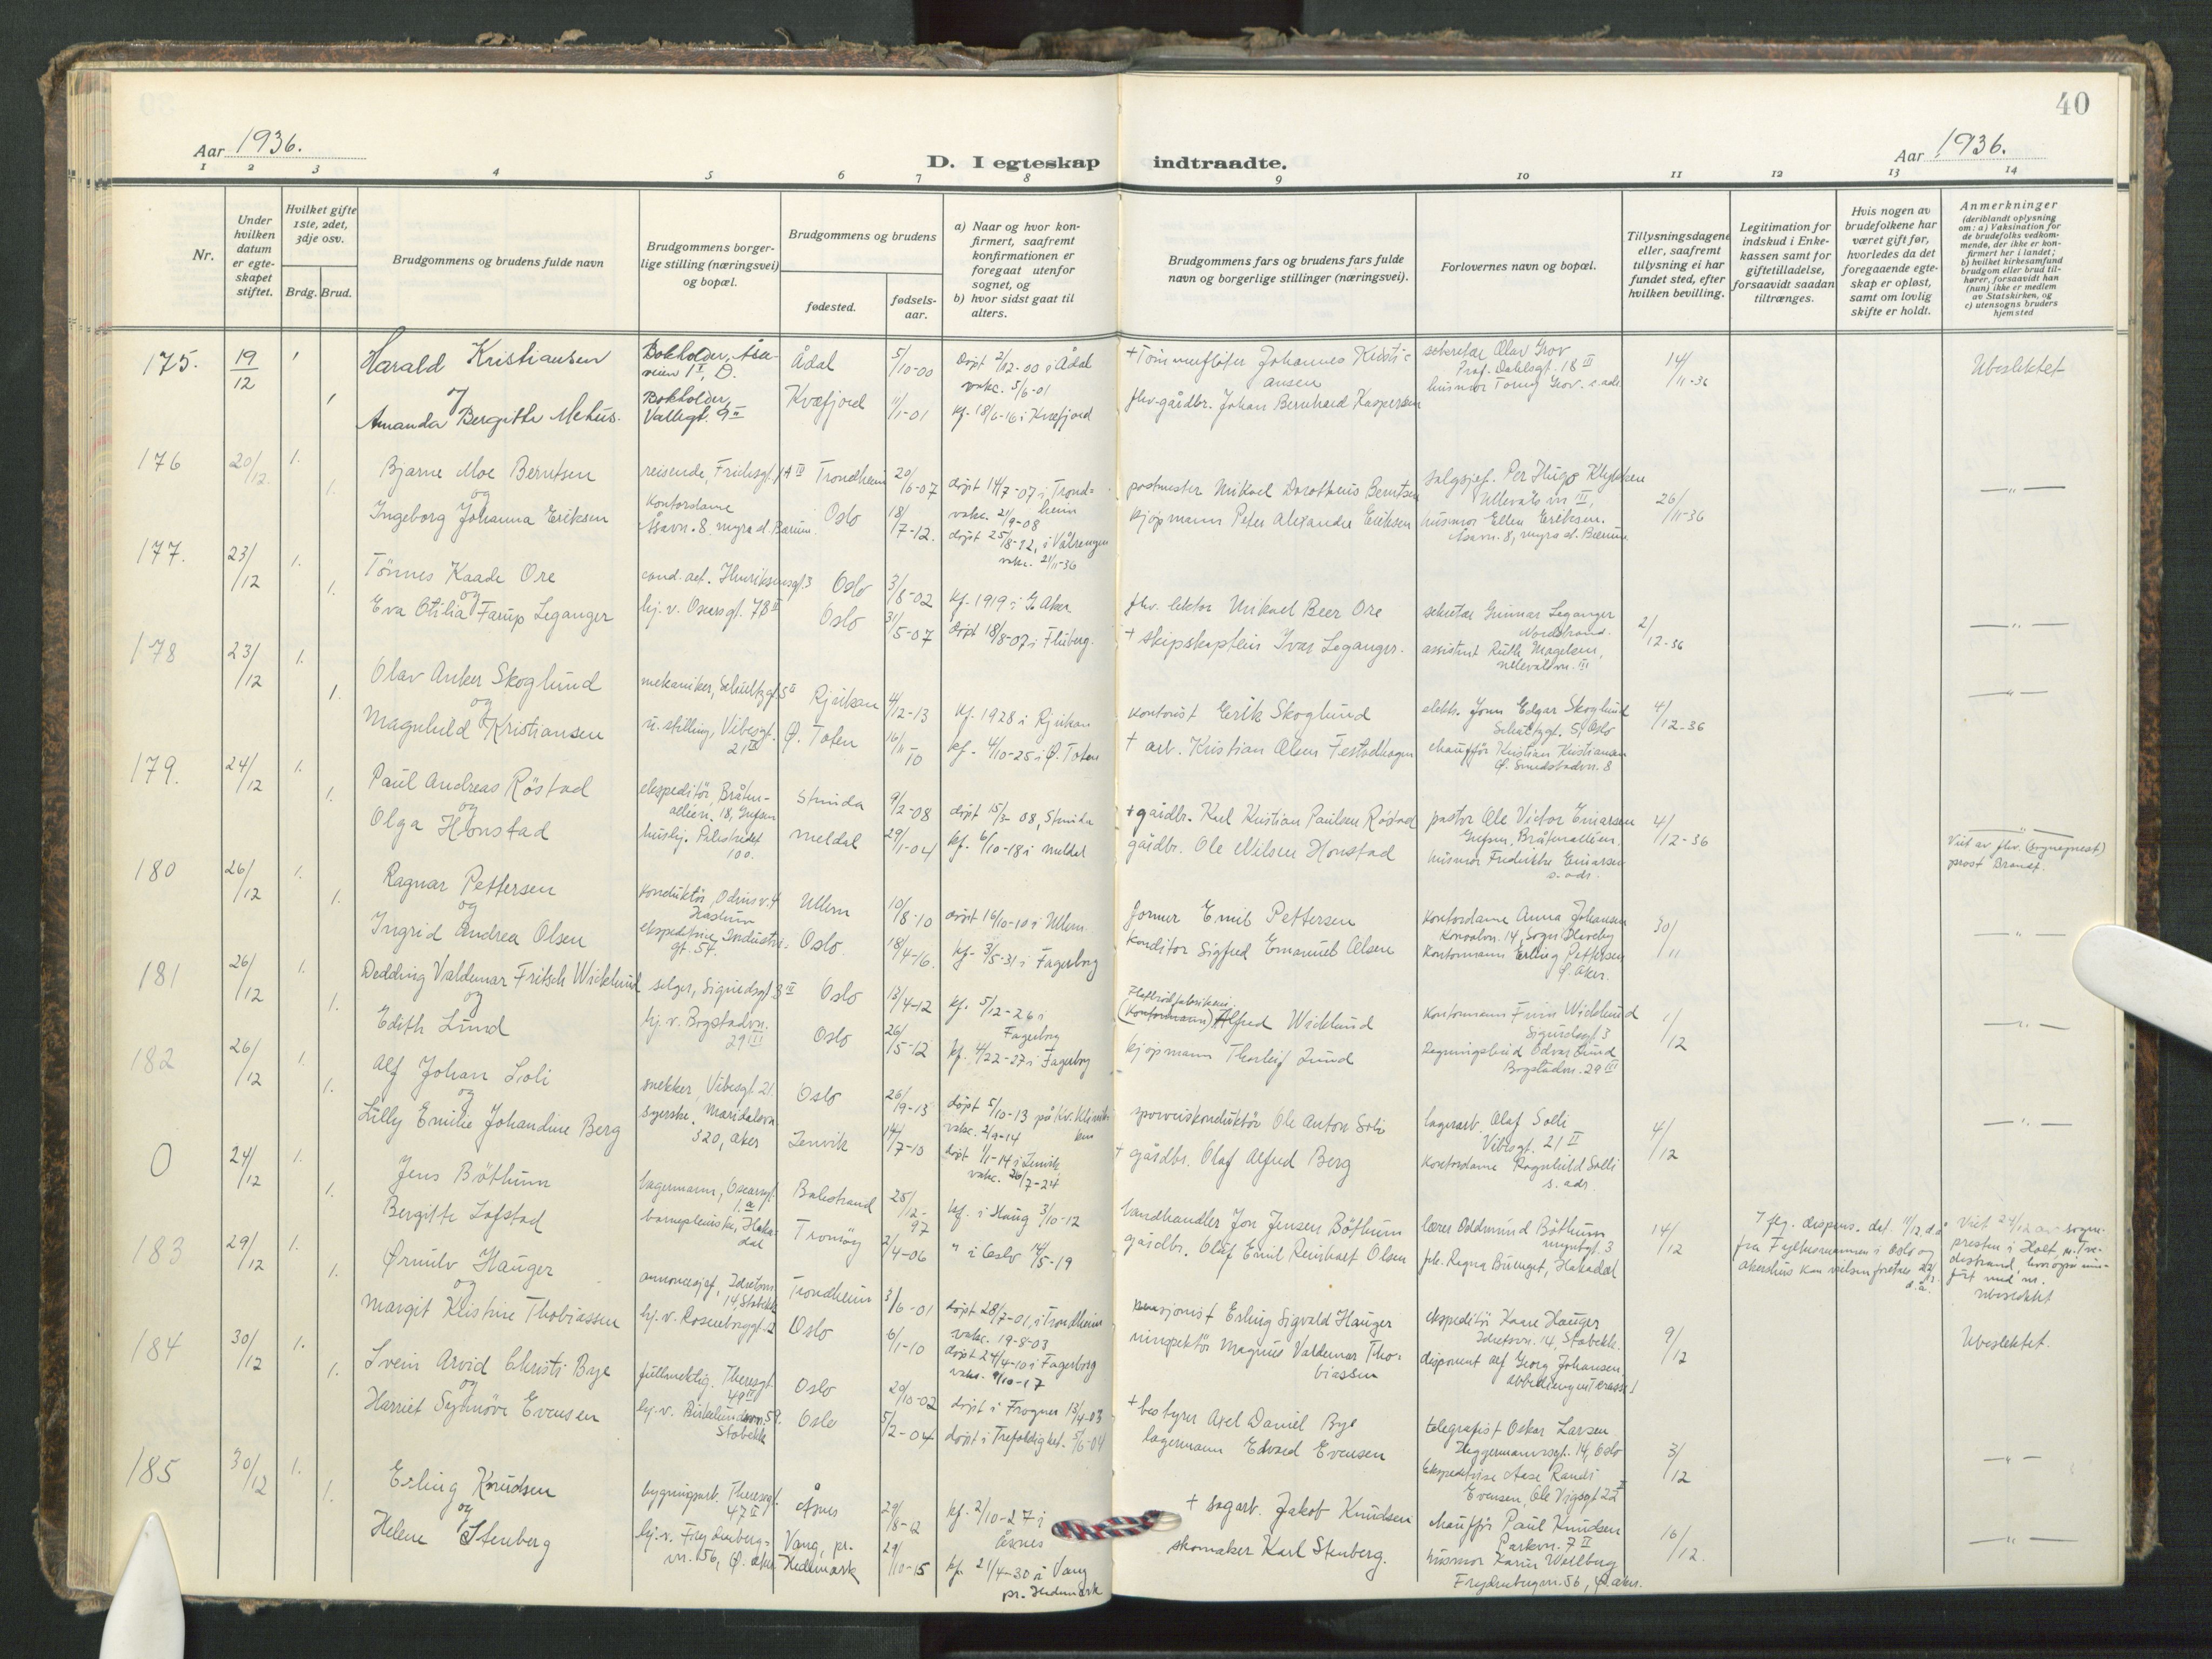 40
Aar 1936.
D. I egteskap indtraadte.
Aar 1936.
1 2 3 4 5 6 7 8 9 10 11 12 13 14
Nr.
Under hvilken datum er egteskapet stiftet.
Hvilket gifte 1ste, 2det, 3dje osv.
Brdg. Brud.
Brudgommens og brudens fulde navn
Brudgommens borgerlige stilling (næringsvei) og bopæl.
Brudgommens og brudens
fødested.
fødselsaar.
a) Naar og hvor konfirmert, saafremt konfirmationen er foregaat utenfor sognet, og
b) hvor sidst gaat til alters.
Brudgommens fars og brudens fars fulde navn og borgerlige stillinger (næringsvei).
Forlovernes navn og bopæl.
Tillysningsdagene eller, saafremt tillysning ei har fundet sted, efter hvilken bevilling.
Legitimation for indskud i Enkekassen samt for giftetilladelse, forsaavidt saadan tiltrænges.
Hvis nogen av brudefolkene har været gift før, hvorledes da det foregaaende egteskap er opløst, samt om lovlig skifte er holdt.
Anmerkninger
(deriblandt oplysning om: a) Vaksination for de brudefolks vedkommende, der ikke er konfirmert her i landet; b) hvilket kirkesamfund brudgom eller brud tilhører, forsaavidt han (hun) ikke er medlem av Statskirken, og c) utensogns bruders hjemsted
175. 19/12 1 Harald Kristiansen Bokholder, Åsaveien 1 I, D. Ådal 5/10-00 Døpt 2/12-00 i Ådal vakc. 5/6-01 + Tømmerfløter Johannes Kristiansen sekretær Olav Grov Prof. Dahlsgt. 18 III 14/11-36 Ubeslektet
og
1 Amanda Bergithe Mehus. Bokholder, Vallegt. 9 II Kvæfjord 11/1-01 kf. 18/6-16 i Kvæfjord fhv. gårdbr. Johan Bernhard Kaspersen husmor Torny Grov s. adr.
176 20/12. 1. Bjarne Moe Berntsen reisende, Frichsgt. 1 A III Trondheim 20/6-07 døpt 14/7-07 i Trondheim vakc. 21/9-08 postmester Mikael Dorotheus Berntsen salgssjef. Per Hugo Klykken Ullevåls vn III, 26/11-36 — „ —
og
1. Ingeborg Johanna Eriksen Kontordame Åsavn. 8 myra st. Bærum. Oslo 18/7-12. døpt 25/8-12, i Vålrengen vakc. 21/11-36 kjøpmann Peter Alexander Eriksen husmor Ellen Eriksen. Åsavn. 8, myra st. Bærum.
177. 23/12 1. Tönnes Kaade Ore cand. act. Henriksensgt. 3 Oslo 3/8-02 kf. 1919 i G. Aker fhv. lektor Mikael Beer Ore sekretær Gunnar Leganger Nordstrand. 2/12-36 — „ —
og
1. Eva Otilia Farup Leganger hj. v. Oscarsgt. 78 II Oslo 31/5-07 døpt 18/8-07 i Fluberg. + skipskaptein Ivar Leganger. assistent Ruth Magelsen, Ullevålsvn. III
178 23/12 1. Olav Anker Skoglund mekaniker, Schultzgt. 5 II Rjukan 4/12-13 kf. 1928 i Rjukan kontorist Erik Skoglund elektr. John Edgar Skoglund Schultzgt. 5, Oslo 4/12-36 — „ —
og
1. Magnhild Kristiansen u. stilling, Vibesgt. 21 II Ø. Toten 16/11-10 kf. 4/10-25 i Ø. Toten + arb. Kristian Olsen chauffør Kristian Kristiansen
179. 24/12 1. Paul Andreas Röstad ekspeditör, Bråtenalléen. 18, Grefsen Strinda 9/2-08 døpt 15/3-08, Strinda + gårdbr. Karl Kristian Paulsen Röstad pastor Ole Victor Einarsen Grefsen, Bråtenalléen. 4/12-36 — „ —
og
1. Olga Honstad hushj. Pilestredet 100. Meldal 29/1-04 kf. 6/10-18 i Meldal gårdbr. Ole Nilsen Honstad husmor Fredrikke Einarsen s. adr. Viet av fhv. (sogneprest) prost Brandt.
180 26/12 1. Ragnar Pettersen konduktör, Odins v. 4 Haslum Ullern 10/8-10 døpt 16/10-10 i Ullern. former Emil Pettersen kontordame Anna Johansen 30/11 — „ —
og
1. Ingrid Andrea Olsen ekspeditrise, Industrigt. 54. Oslo 18/4-16. kf. 3/5-31 i Fagerborg konditor Sigfred Emanuel Olsen kontormann Erling Pettersen Ø. Aker.
181 26/12 1. Dedding Valdemar Fritsch Wicklund selger, Sigurdsgt. 3 III Oslo 13/4-12 kf. 5/12-26 i Fagerborg (kontormann) Alfred Wicklund kontormann Finn Wicklund Sigurdsgt. 3 1/12 — „ —
og
1. Edith Lund hj. v. Bogstadvn. 29 III Oslo 26/5-12 kf. 4/22-27 i Fagerborg kjøpmann Thorleif Lund Regningsbud Odvar Lund Bogstadvn. 29 III
182 26/12 1. Alf Johan Soli snekker, Vibesgt. 21. Oslo 26/9-13 døpt 5/10-13 på Kv. klinikken vakc. 2/9-14 sporveiskonduktör Ole Anton Soli lagerarb. Olaf Solli Vibesgt. 21 II 4/12 — „ —
og
1. Lilly Emilie Johandine Berg syerske, Maridalsvn 320, Aker Lenvik 14/7-13 døpt 1/1-14 i Lenvik vakc. 26/7-24 + gårdbr. Olaf Alfred Berg kontordame Ragnhild Solli s. adr.
0 24/12 1. Jens Böthun lagermann, Oscarsgt. 1 a Balestrand 25/12-97 kf. i Haug 3/10-12 landhandler Jon Jensen Böthun lærer Oddmund Böthun myntgt. 3 14/12
1. Bergitte Lofstad barnepleierske, Hakadal Tromöy 2/4-06 " i Oslo 14/5-19 gårdbr. Oluf Emil Reinhart Olsen frk. Ragna Buenget, Hakadal
7 flg. dispens. dat. 11/12 d.å. fra Fylkesmannen i Oslo og Akershus kan vielsen foretaes 22/12 d.å.
Viet 24/12 av sognepresten i Holt, pr. Tvedestrand, hvor også innført med nr. ubeslektet
183 29/12 1. Ørnulv Hauger annoncesjef, Idrettsvn 14, Stabekk Trondheim 3/6-01 døpt 28/7-01, i Trondheim vakc. 19-8-03 pensjonist Erling Sigvald Hauger ekspeditör Kaare Hauger Idrettsvn. 14, Stabekk. 9/12 Ubeslektet.
og
1. Margit Kristine Thobiassen hj. v. Rosenborggt. 2 Oslo 6/1-10 døpt 24/4-10 i Fagerborg vakc. 9/10-17 Magnus Valdemar Thobiassen disponent Alf Georg Johansen
184 30/12 1. Svein Arvid Christi Bye fullmektig. Theresgt. 49 II Oslo 20/10-02 døpt i Frogner 13/4-03 + bestyrer Axel Daniel Bye telegrafist Oskar Larsen Heggermannsgt. 14, Oslo 3/12 — „ —
og
1. Harriet Synnöve Evensen hj. v. Birkelundvn. 59. Stabekk Oslo 5/2-04 døpt i Trefoldighet. 5/6-04 lagermann Edvard Evensen Ekspeditrise Aase Randi Evensen, Ole Vigsgt 22 I
185 30/12 1. Erling Knudsen bygningsarb. Theresgt. 47 II Åsnes 29/8-12 kf. 2/10-27 i Åsnes + sagarb. Jakob Knudsen chauffør Paul Knudsen Parkvn. 7 II 16/12. — „ —
og
1. Helene Stenberg hj. v. Frydenbergvn. 156, Ø. Aker Vang, pr. Hedemark 29/10-15 kf. 21/4-30 i Vang pr. Hedemark skomaker Karl Stenberg. husmor Karin Wellberg Frydenbergvn. 56, Ø. Aker.